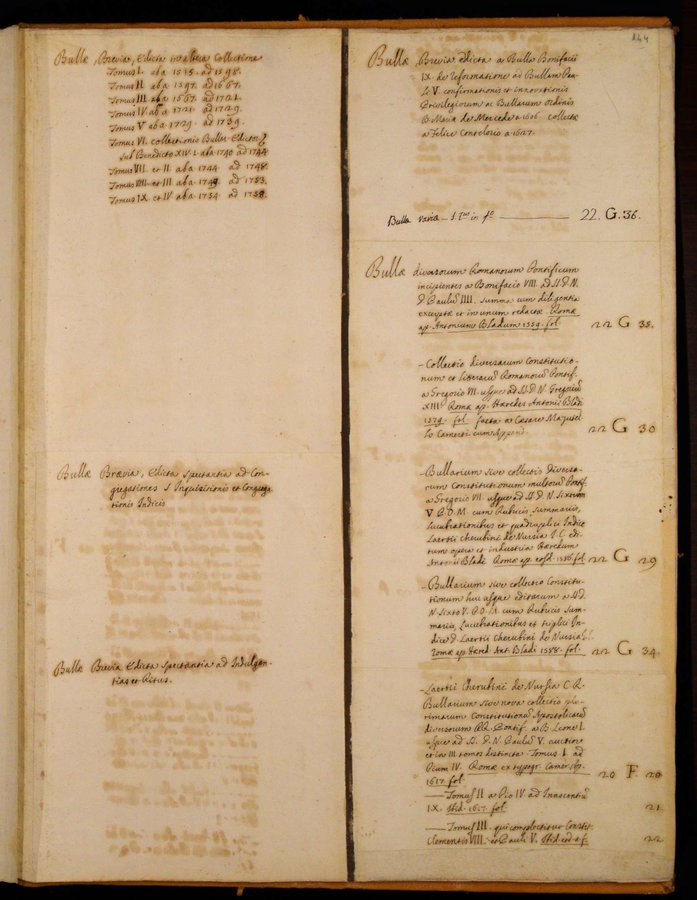 144
Bullæ, Brevia, Edicta in altera Collectione
Tomus I. ab a 1515. ad 1598.
Tomus II ab a 1597. ad 1667.
Tomus III ab a 1667. ad 1721.
Tomus IV ab a 1721. ad 1729.
Tomus V ab a 1729. ad 1739.
Tomus VI. collectionis Bullar. Edictor
sub Benedicto XIV. I. ab a 1740 ad 1744
Tomus VII. et II ab a 1744 ad 1748.
Tomus VIII. et III ab a 1749. ad 1753.
Tomus IX et IV ab a 1754. ad 1758.
Bullæ Brævia, Edicta spectantia ad Con-
gregationes S. Inquisitionis et Congrega
tionis Indicis
Bullæ Brevia Edicta Spectantia ad Indulgen-
tias et Ritus.
Bullæ, Brevia edicta a Bulla Bonifacii
IX. de Reformatione ad Bullam Pau-
li V. confirmationis et innovationis
Privilegiorum ac Bullarum Ordinis
B. Mariæ de Mercede a 1606. collecta
a Felice Contelorio a 1627.
Bulla varia - 1. in fo 22. G. 36.
Bullæ diversorum Romanorum Pontificum
incipientes a Bonifacio VIII. ad SS. D. N.
D. Paulū IIII. summa cum diligentia
excerptæ et in unum redactæ. Romæ
ap. Antonium Bladum 1559. fol. 22 G 35.
- Collectio diversarum Constitutio-
num et literarū Romanorū Pontif.
a Gregorio VII. usque ad SS. D. N. Gregoriū
XIII Romæ ap. Hæredes Antonii Bladi
1579. fol. facta a Cæsare Mazutel-
lo Camerti cum Append. 22 G 30
- Bullarium sive collectio diversa-
rum Constitutionum multorū Pontif.
a Gregorio VII. usque ad SS. D. N. Sixtum
V P. O. M. cum Rubricis, summariis,
lucubrationibus et quadruplici Indice
Laertii Cherubini de Nursia I. C. edi-
tum opera et industria Hæredum
Antonii Bladi Romæ ap. eosd. 1586. fol. 22 G 29
- Bullarium sive collectio Constitu-
tionum huc usque editarum a SS. D.
N. Sixto V. P. O. M. cum Rubricis sum-
mariis, Lucubrationibus et triplici In-
dice D. Laertii Cherubini de Nursia
Romæ ap Hæred. Ant. Bladi 1588. fol. 22 G 34.
- Laertii Cherubini de Nursia C. R.
Bullarium sive nova collectio plu-
rimarum Constitutionū Apostolicarū
diversorum RR. Pontif. a B. Leone I.
usque ad SS. D. N. Paulū V. auctior
et in III tomos distincta. Tomus I. ad
Pium IV. Romæ ex typogr. Camer. Ap.
1617. fol. 20 F. 20
— Tomus II a Pio IV ad Innocentiū
IX. Ibid. 1617. fol. 21
— Tomus III. qui complectitur Constit.
Clementis VIII. et Pauli V. Ibid. eod. a. f. 22